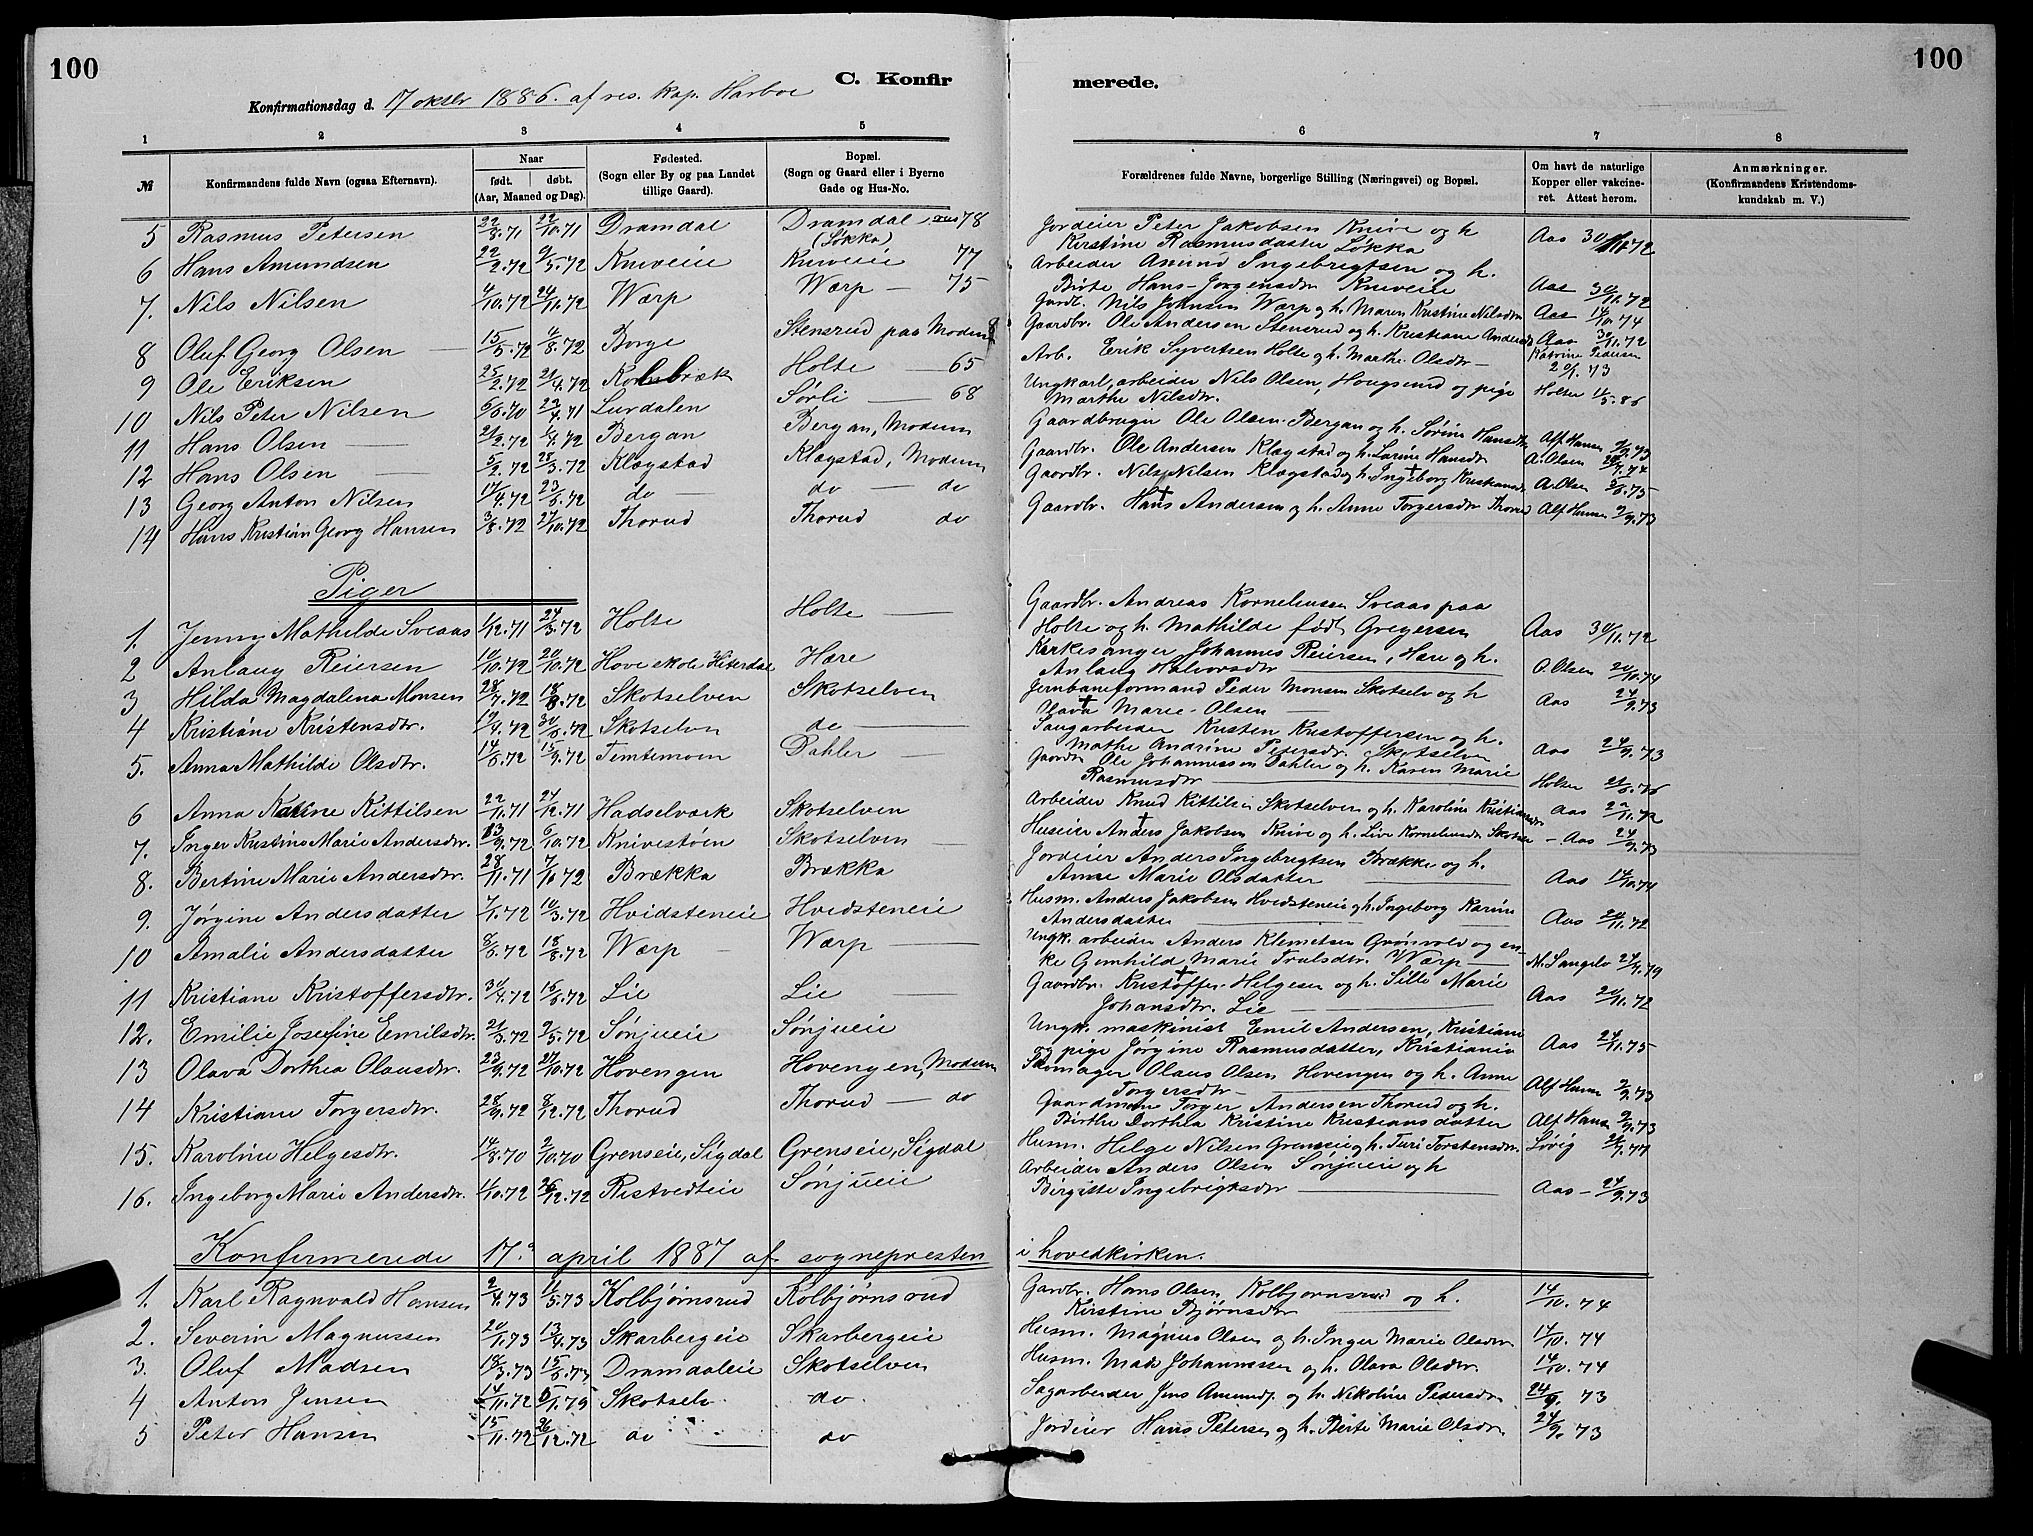 100
C. Konfir
merede.
100
Konfirmationsdag d. 17 oktbr 1886. af res. kap. Harboe
1 2 3 4 5 6 7 8
№
Konfirmandens fulde Navn (ogsaa Efternavn).
Naar
født. døbt.
(Aar, Maaned og Dag).
Fødested.
(Sogn eller By og paa Landet
tillige Gaard).
Bopæl.
(Sogn og Gaard eller i Byerne
Gade og Hus-No.
Forældrenes fulde Navne, borgerlige Stilling (Næringsvei) og Bopæl.
Om havt de naturlige
Kopper eller vakcine-
ret. Attest herom.
Anmærkninger.
(Konfirmandens Kristendoms-
kundskab m. V.)
5 Rasmus Petersen 22/8.71 22/10.71 Dramdal Dramdal 78 (Løkka) Jordeier Peter Jakobsen Knive og h
Kirstine Rasmusdatter Løkka Aas 30/11.72
6 Hans Amundsen 22/2.72 9/5.72 Kniveie Kniveie 77 Arbeider Amund Ingebrigtsen og h.
Birte Hans-Jørgensdtr Kniveie Aas 30/11.72
7. Nils Nilsen 4/10.72 24/11.72 Wærp Wærp – 75 Gardb. Nils Johnsen Wærp og h. Maren Kristine Nilsdtr Aas 14/10.74
8 Oluf Georg Olsen 15/5.72 4/8.72 Borge Stensrud paa Modum Gaardbr. Ole Andersen Stensrud og h. Kristiane Andersdtr Aas 30/11.72
9 Ole Eriksen 25/2.72 21/4.72 Kolabræk Holte – 65 Arb. Erik Syvertsen Holte og h. Marthe Olsdtr – Katrine Pedersen
20/.73
10 Nils Peter Nilsen 6/6.70 23/4.71 Lurdalen Sørli – 68 Ungkarl, arbeider Nils Olsen, Hougsund og pige
Marthe Nilsdtr. Holter 11/5.86
11 Hans Olsen 21/2.72 1/4.72 Bergan Bergan, Modum Gaardbruger Ole Olsen Bergan og h. Sørine Hansdtr Alf Hansen 2/9.73
12 Hans Olsen 5/2.72 28/3.72 Klægstad Klægstad, Modum Gaardbr. Ole Andersen Klægstad og h. Larine Hansdtr A. Olsen 24/7.74
13 Georg Anton Nilsen 17/4.72 23/6.72 do – do – do Gaardbr. Nils Nilsen Klægstad og h. Ingeborg Kristiansdtr A. Olsen 2/6.75
14 Hans Kristian Georg Hansen 3/8.72 27/10.72 Thorud Thorud do Gaardbr. Hans Andersen og h. Anne Torgersdtr Thorud Alf Hansen 2/9.73
Piger
1. Jenny Mathilde Sveaas 1/12.71 24/3.72 Holte Holte – Gaardbr. Andreas Korneliussen Sveaas paa
Holte og h. Mathilde født Gregersen Aas 30/11.72
2 Anlaug Reiersen 10/10.72 20/10.72 Hove skole Hiterdal Hære Kirkesanger Johannes Reiersen, Hære og h.
Anlaug Halvorsdtr O. Olsen 20/10.74
3 Hilda Magdalena Monsen 28/7.72 18/8.72 Skotselven Skotselven Jernbaneformand Peder Monsen Skotselv og h
Olava Marie Olsen – Aas 24/9.73
4 Kristiane Kristensdtr. 19/4.72 30/6.72 Skotselven do – Saugarbeider Kristen Kristoffersen og h.
Mathe Andrine Petersdtr. Skotselven Aas 24/9.73
5. Anna Mathilde Olsdtr. 14/8.72 15/9.72 Temtemoen Dahler – Gaardbr Ole Johannessen Dahler og h. Karen Marie
Rasmusdtr Holter 21/6.76
6 Anna Katrine Kittilsen 22/11.71 24/12.71 Hadselværk Skotselven Arbeider Knud Kittilsen Skotselven og h. Karoline Kristiansdtr Aas 22/11.72
7. Inger Kristine Marie Andersdtr. 13/9.72 6/10.72 Knivestøen Skotselven Huseier Anders Jakobsen Knive og h. Live Korneliusdtr Skotselv – Aas 24/9.73
8. Bertine Marie Andersdtr. 28/11.71 7/1.72 Brækka Brækka Jordeier Anders Ingebrigtsen Brække og h.
Anne Marie Olsdatter Aas 14/10.74
9. Jørgine Andersdatter 7/1.72 10/3.72 Hvidsteneie Hvidsteneie Husm. Anders Jakobsen Hvidsteneie og h. Ingeborg Karine
Andersdatter Aas 20/11.72
10 Amalie Andersdatter 8/6.72 18/8.72 Wærp Wærp Ungk. arbeider Anders Klemetsen Grønvold og en-
ke Gunhild Marie Trulsdtr. Wærp – M. Langelv 24/9.79
11 Kristiane Kristoffersdtr. 30/4.72 16/6.72 Lie Lie Gaardbr. Kristoffer Helgesen og h. Sille Marie
Johansdtr. Lie Aas 20/11.72
12. Emilie Josefine Emilsdtr. 21/3.72 9/5.72 Sønjueie Sønjueie Ungk. maskinist Emil Andersen, Kristiania
pige Jørgine Rasmusdatter, Kristiania Aas 24/11.75
13 Olava Dorthea Olausdtr. 23/9.72 27/10.72 Hovengen Hovengen, Modum Skomager Olaus Olsen Hovengen og h. Anne
Torgersdtr Alf Hansen 2/9.73
14 Kristiane Torgersdtr. 28/9.72 8/12.72 Thorud Thorud – do Gaardmand Torger Andersen Thorud og h.
Birthe Dorthea Kristine Kristiansdatter Alf Hansen 2/9.73
15. Karoline Helgesdtr. 14/8.70 2/10.70 Grenseie, Sigdal Grenseie, Sigdal Husm. Helge Nilsen Grenseie og h. Turi Torstensdtr. Lövig 21/7.77
16. Ingeborg Marie Andersdtr. 4/10.72 26/12.72 Ristvedteie Sønjueie Arbeider Anders Olsen Sønjueie og h
Birgitte Ingebrigtsdtr Aas – 24/9.73
Konfirmerede 17. april 1887 af sognepresten i hovedkirken.
1. Karl Ragnvald Hansen 2/4.73 11/5.73 Kolbjørnsrud Kolbjørnsrud Gardbr. Hans Olsen Kolbjørnsrud og h.
Kirstine Bjørnsdtr 14/10.74
2. Severin Magnussen 20/1.73 13/4.73 Skarbergeie Skarbergeie Husm. Magnus Olsen og h. Inger Marie Olsdtr 14/10.74
3. Oluf Madsen 14/3.73 15/6.73 Dramdaleie Skotselven Husm. Mads Johannessen og h. Olava Olsdtr. 14/10.74
4 Anton Jensen 14/11.72 5/1.75 Skotselv. do. Sagarbeider Jens Amundsen og h. Nikoline Pedersdtr 24/9.73
5 Peter Hansen 15/11.72 26/12.72 do do Jordeier Hans Petersen og h. Berte Marie Olsdtr. 24/9.73